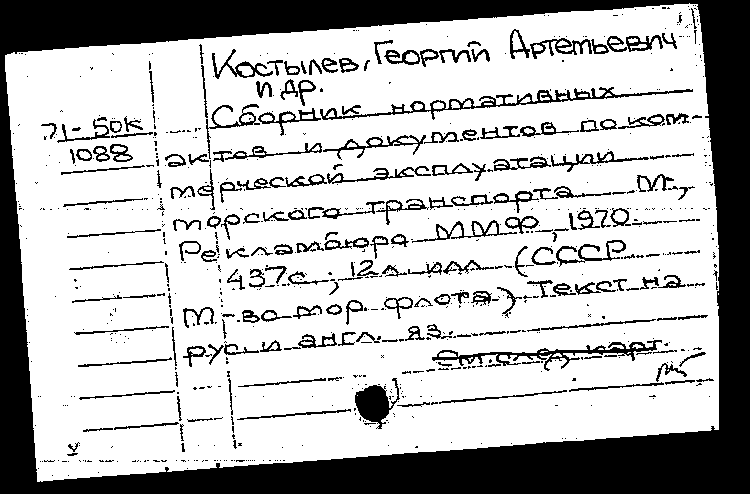 Костылев, Георгий Артемьевич
и др.
71-50К
1088
Сборник нормативных
актов и документов по ком-
мерческой эксплуатации
морского транспорта М.,
Рекламбюро ММФ, 1970.
437с.; 12л. илл (СССР
М-во мор. флота). Текст на
рус. и англ. яз.
См. след. карт.